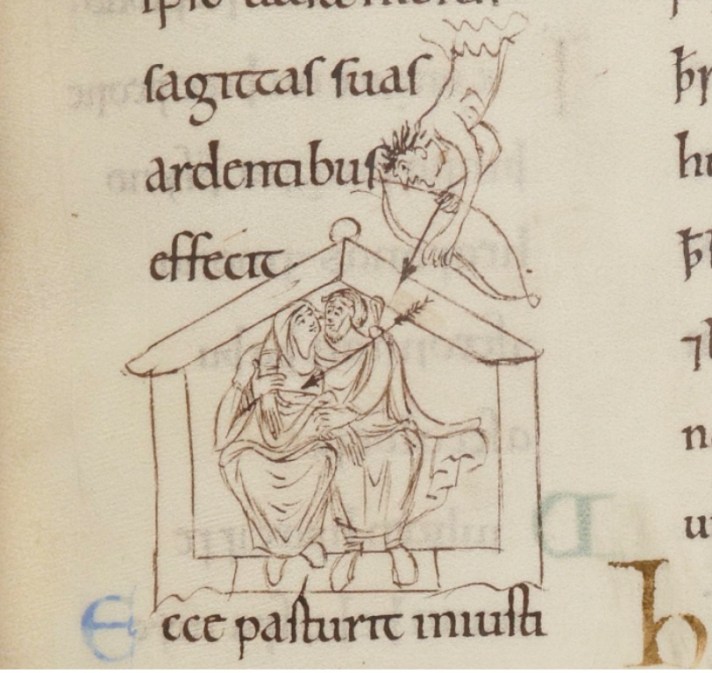 sagittas suas
ardentibus
effecit
Ecce parturit iniusti